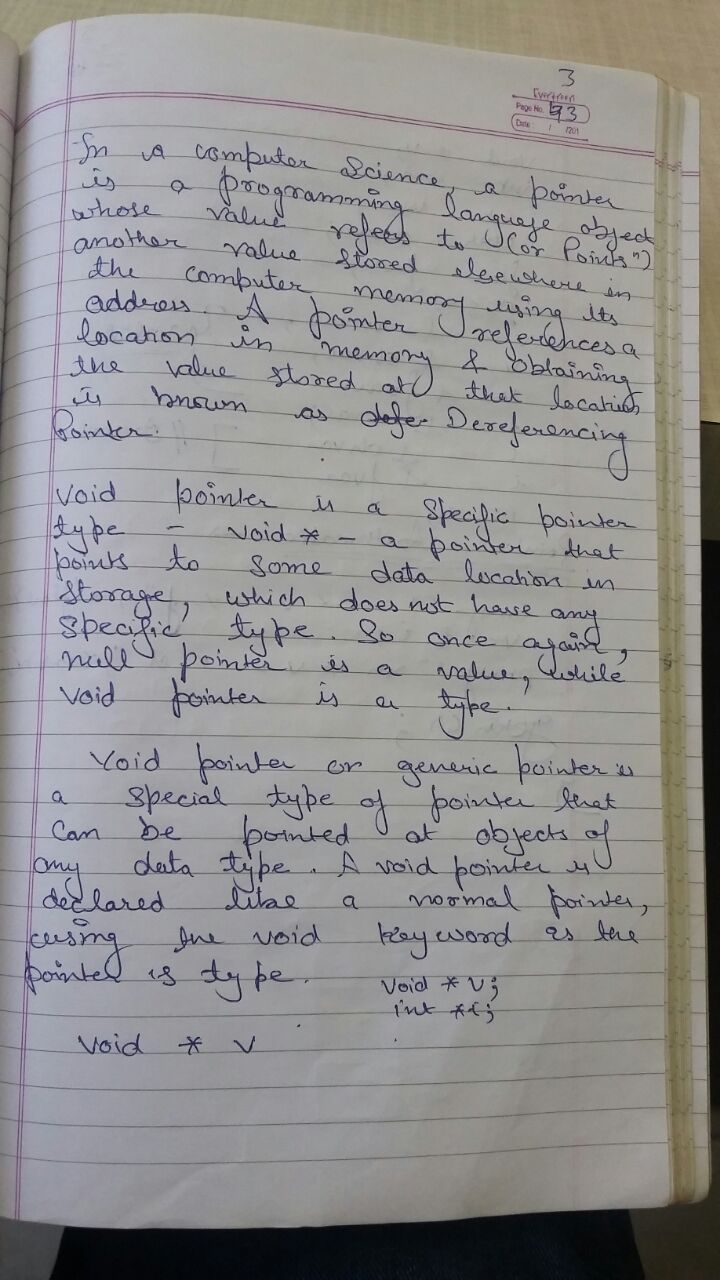 3
Evergreen
Page No. 93
Date: / /201
In a computer Science, a pointer
is a programming language object
whose value refers to (or Points")
another value stored elsewhere in
the computer memory using its
address. A pointer references a
location in memory & obtaining
the value stored at that location
is known as Dereferencing
Pointer.
Void pointer is a specific pointer
type - void * - a pointer that
points to some data location in
storage, which does not have any
specific type. So once again,
null pointer is a value, while
void pointer is a type.
Void pointer or generic pointer is
a special type of pointer that
can be pointed at objects of
any data type. A void pointer is
declared like a normal pointer,
using the void keyword as the
pointer is type.
void * v;
int *i;
void * v